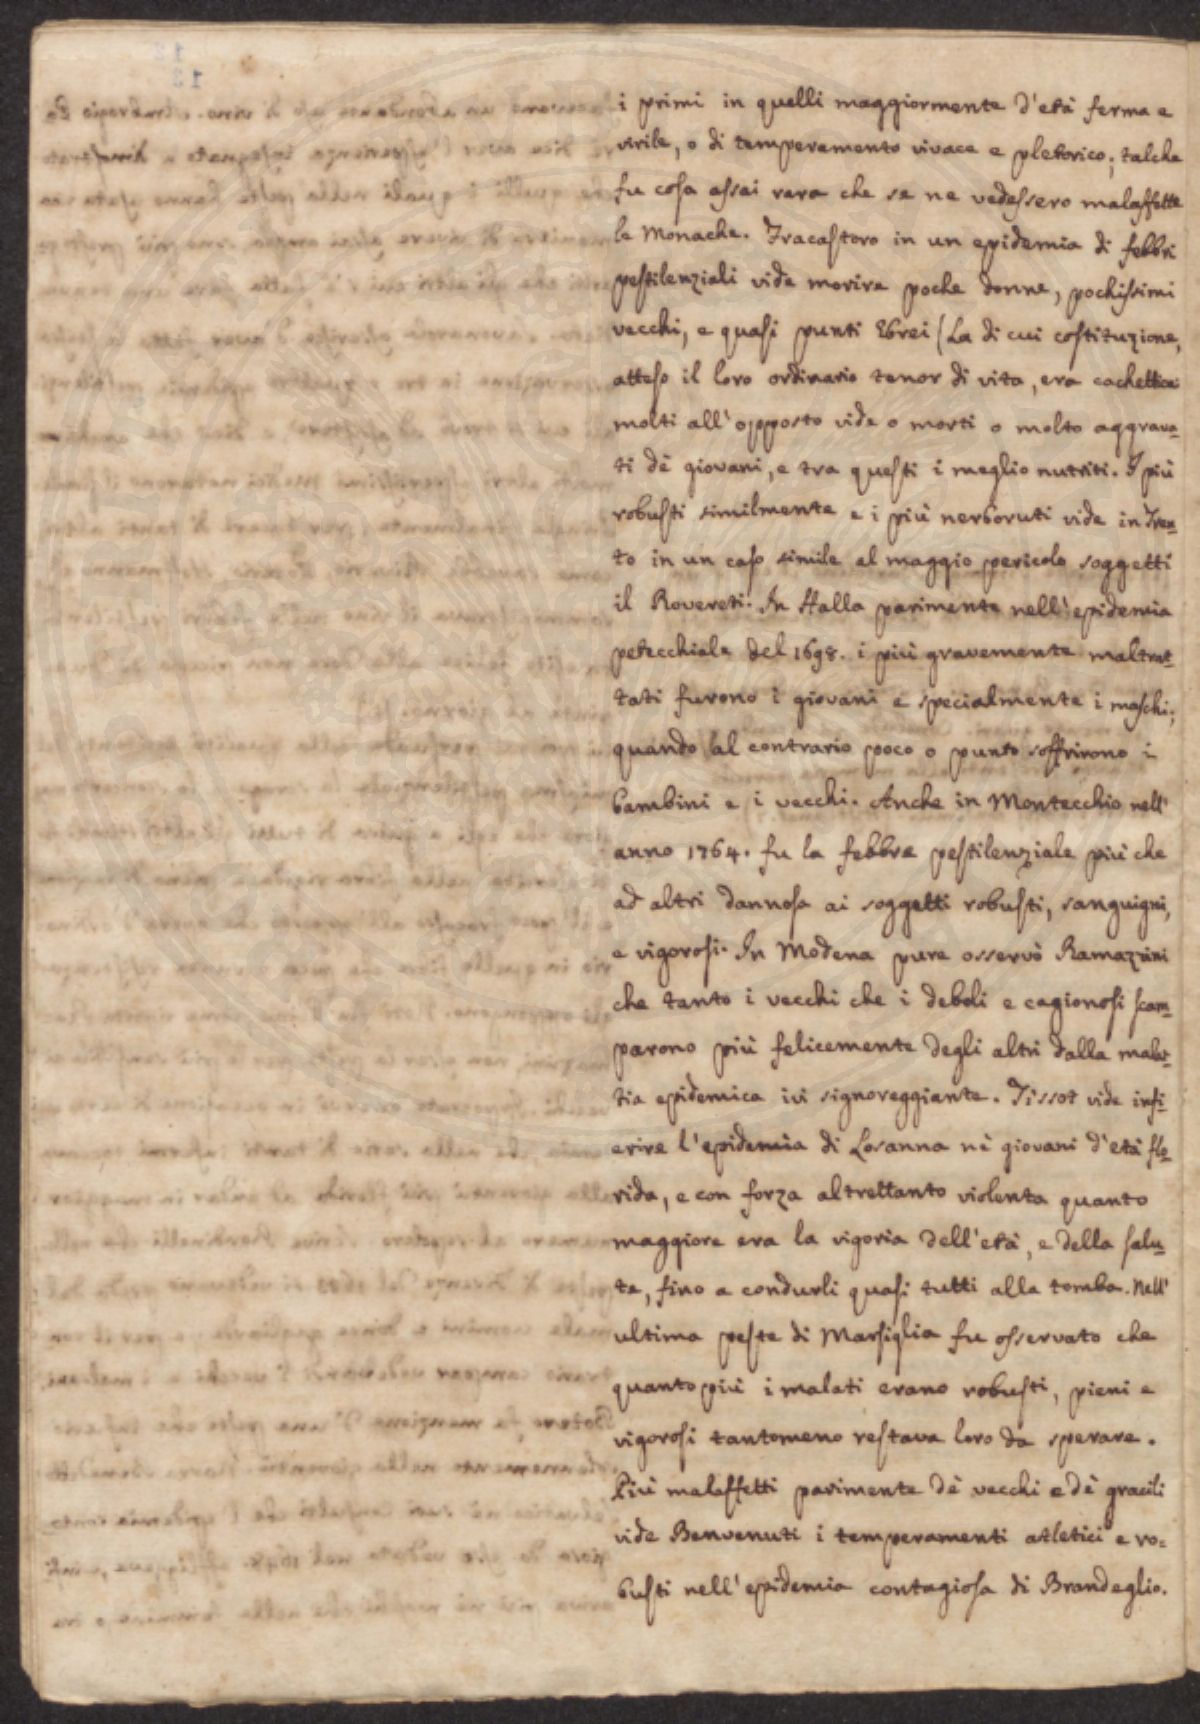 i primi in quelli maggiormente d'età ferma e
virile, o di temperamento vivace e pletorico; talche
fu cosa assai rara che se ne vedessero malaffette
le Monache. Fracastoro in un epidemia di febbri
pestilenziali vide morire poche donne, pochissimi
vecchi, e quasi punti Ebrei (La di cui costituzione,
atteso il loro ordinario tenor di vita, era cachettica
molti all'opposto vide o morti o molto aggrava=
ti dè giovani, e tra questi i meglio nutriti. I più
robusti similmente e i più nerboruti vide in Tren=
to in un caso simile al maggio pericolo soggetti
il Rovereti. In Halla parimente nell'epidemia
petecchiale del 1698. i più gravemente maltrat=
tati furono i giovani e specialmente i maschi;
quando al contrario poco o punto soffrirono i
bambini e i vecchi. Anche in Montecchio nell'
anno 1764. fu la febbre pestilenziale più che
ad altri dannosa ai soggetti robusti, sanguigni,
e vigorosi. In Modena pure osservò Ramazzini
che tanto i vecchi che i deboli e cagionosi scam=
parono più felicemente degli altri dalla malat=
tia epidemica ivi signoreggiante. Tissot vide infi=
erire l'epidemia di Losanna nè giovani d'età flo=
rida, e con forza altrettanto violenta quanto
maggiore era la vigoria dell'età, e della salu=
te, fino a condurli quasi tutti alla tomba. Nell'
ultima peste di Marsiglia fu osservato che
quanto più i malati erano robusti, pieni e
vigorosi tantomeno restava loro da sperare.
Più malaffetti parimente dè vecchi e dè gracili
vide Benvenuti i temperamenti atletici e ro=
busti nell'epidemia contagiosa di Brandeglio.